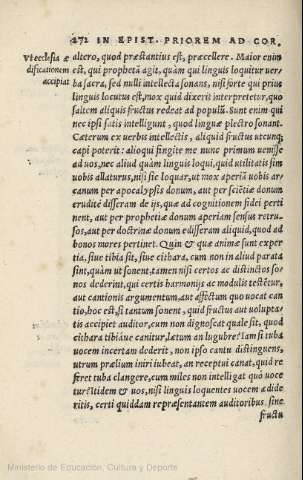 272 IN EPIST. PRIOREM AD COR.
Vt ecclesia æ
dificationem
accipiat
altero, quod præstantius est, præcellere. Maior enim
est, qui prophetā agit, quàm qui linguis loquitur ver
ba sacra, sed nulli intellecta sonans, nisi forte qui prius
linguis locutus est, mox quid dixerit interpretetur, quo
saltem aliquis fructus redeat ad populū. Sunt enim qui
nec ipsi satis intelligunt, quod linguæ plectro sonant.
Cæterum ex verbis intellectis, aliquid fructus utcunq;
capi poterit: alioqui fingite me nunc primum uenisse
ad uos, nec aliud quàm linguis loqui, quid utilitatis sim
uobis allaturus, nisi sic loquar, ut mox aperiā uobis ar=
canum per apocalypsis donum, aut per sciētiæ donum
erudite disseram de ijs, quæ ad cognitionem fidei perti
nent, aut per prophetiæ donum aperiam sensus retru=
sos, aut per doctrinæ donum edisseram aliquid, quod ad
bonos mores pertinet. Quin & quæ animæ sunt exper
tia, siue tibia sit, siue cithara, cum non in aliud parata
sint, quàm ut sonent, tamen nisi certos ac distinctos so=
nos dederint, qui certis harmonijs ac modulis testetur,
aut cantionis argumentum, aut affectum quo uocat can
tio, hoc est, si tantum sonent, quid fructus aut uolupta=
tis accipiet auditor, cum non dignoscat quale sit, quod
cithara tibiaue canitur, lætum an lugubre? Iam si tuba
uocem incertam dederit, non ipso cantu distinguens,
utrum prælium iniri iubeat, an receptui canat, quid re
feret tuba clangere, cum miles non intelligat quò uoce
tur? Itidem & uos, nisi linguis loquentes uocem ædide
ritis, certi quiddam repræsentantem auditoribus, sine
fructu
Ministerio de Educación, Cultura y Deporte